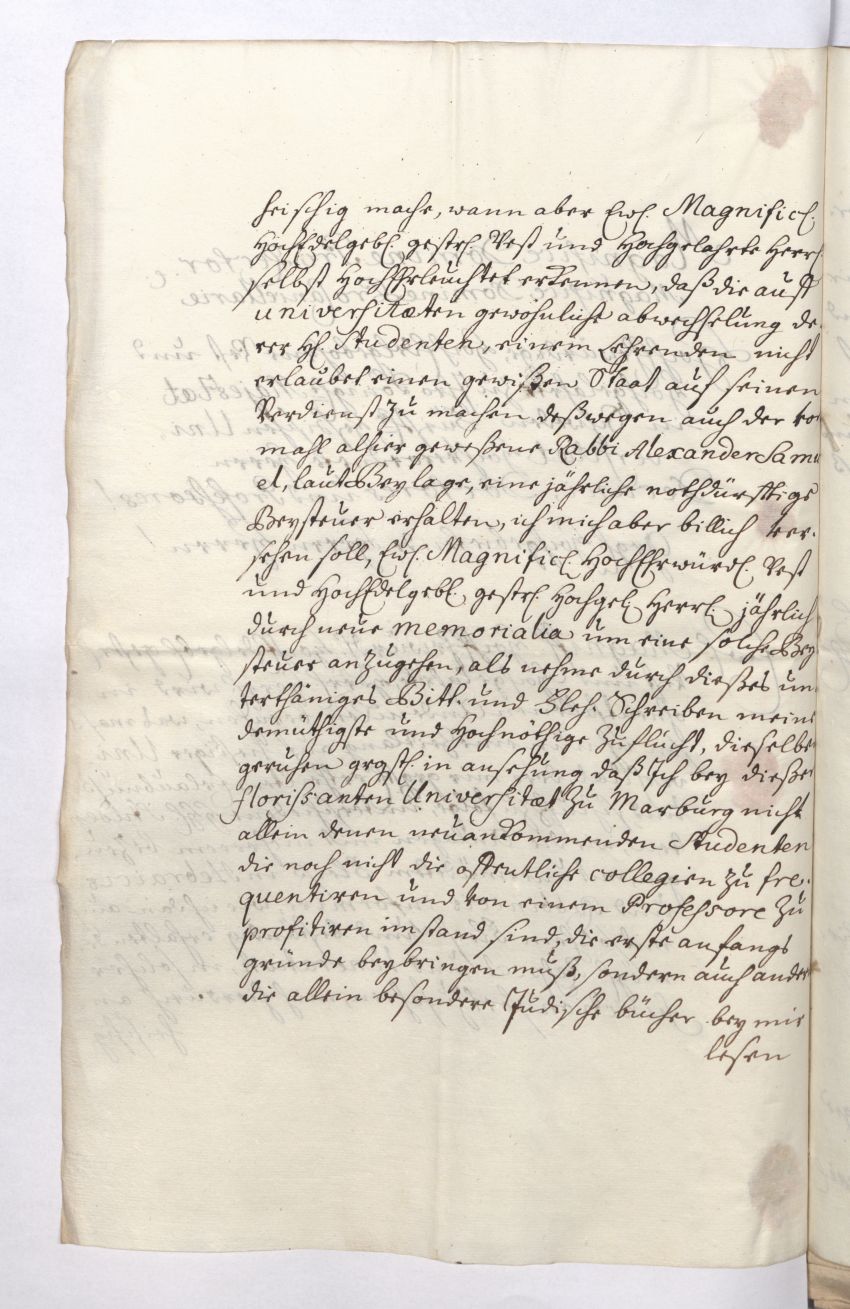 heischig mache, wann aber Ew. Magnificl.
HochEdelgebl. gestrl. Vest und Hochgelahrte Herrl.
selbst HochErleuchtet erkennen, daß die auff
universitæten gewöhnliche abwechselung de-
rer Hl. Studenten, einem Lehrenden nicht
erlaubet einen gewißen Staat auf seinen
Verdienst zu machen deßwegen auch der vor
mahl alhier geweßene Rabbi Alexander Samu
el, laut Beylage, eine jährliche nothdürfftige
Beysteuer erhalten, ich mich aber billich ver-
sehen soll, Ew. Magnificl. HochEhrwürdl. Vest
und HochEdelgebl. gestrl. Hochgel. Herrl. jährlich
durch neue memorialia um eine solche Bey
steuer anzugehen, als nehme durch dießes un-
terthäniges Bitt- und Fleh- Schreiben meine
demüthigste und Hochnöthige Zuflucht, dieselbe
geruhen grgstl. in ansehung daß Ich bey dießer
florissanten Universitæt zu Marburg nicht
allein denen neuankommenden Studenten
die noch nicht die offentliche collegien zu fre-
quentiren und von einem Professore zu
profitiren im stand sind, die erste anfangs
gründe beybringen muß, sondern auch ander
die allein besondere Jüdische bücher bey mir
lesen